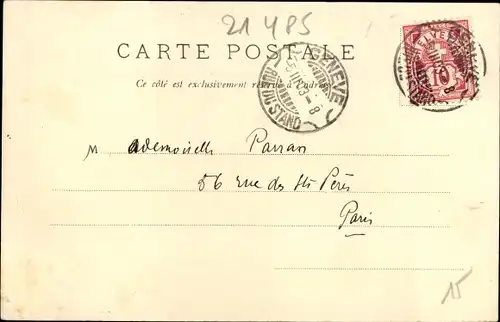 21 YPS
CARTE POSTALE
Ce côté est exclusivement réservé à l'adresse
GENÈVE
RUE DU STAND
HELVETIA
10
Mademoiselle Parran
56 rue des Sts Pères
Paris
15